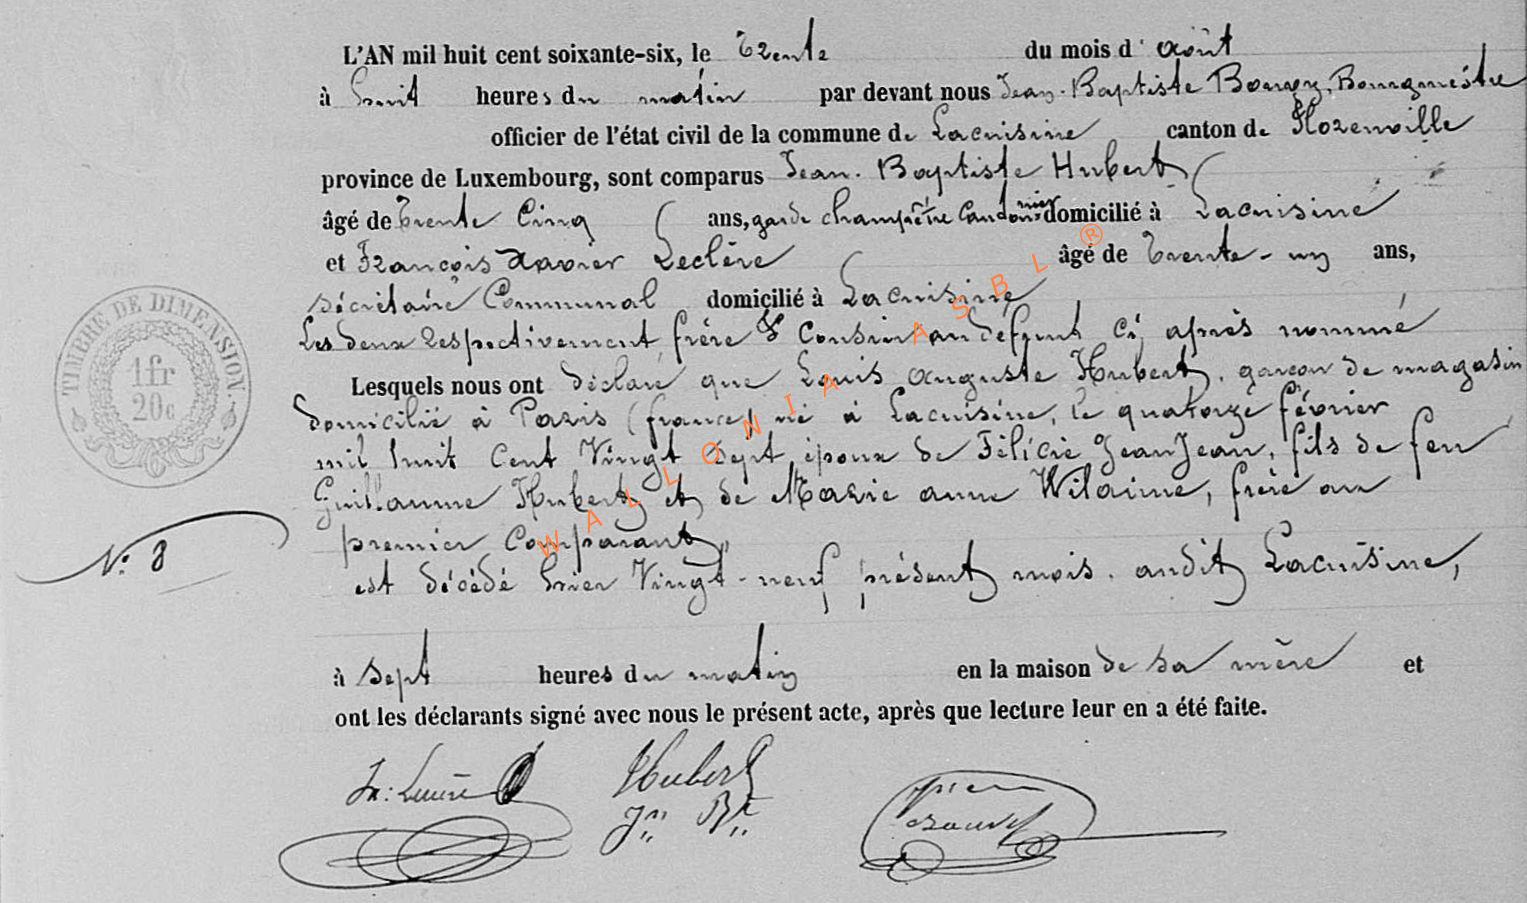 L'AN mil huit cent soixante-six, le Trente du mois d'août
à huit heures du matin par devant nous Jean-Baptiste Bourgmestre
officier de l'état civil de la commune de Lacuisine canton de Florenville
province de Luxembourg, sont comparus Jean-Baptiste Hubert
âgé de trente Cinq ans, garde champêtre Cantonnier domicilié à Lacuisine
et François Xavier Leclère âgé de trente-un ans,
Sécrétaire Communal domicilié à Lacuisine
Les deux respectivement frère & Cousin au défunt Ci après nommé
Lesquels nous ont déclaré que Louis auguste Hubert, garçon de magasin
domicilié à Paris (france) né à Lacuisine, le quatorze février
mil huit Cent Vingt Sept époux de Félicie JeanJean, fils de feu
Guillaume Hubert et de Marie anne Wilaime, frère au
premier Comparant,
N° 8
est décédé hier Vingt-neuf présent mois, audit Lacuisine,
à Sept heures du matin en la maison de Sa mère et
ont les déclarants signé avec nous le présent acte, après que lecture leur en a été faite.
Hubert
Jn Bte
TIMBRE DE DIMENSION.
1fr
20c
WALLONIA ASBL ®